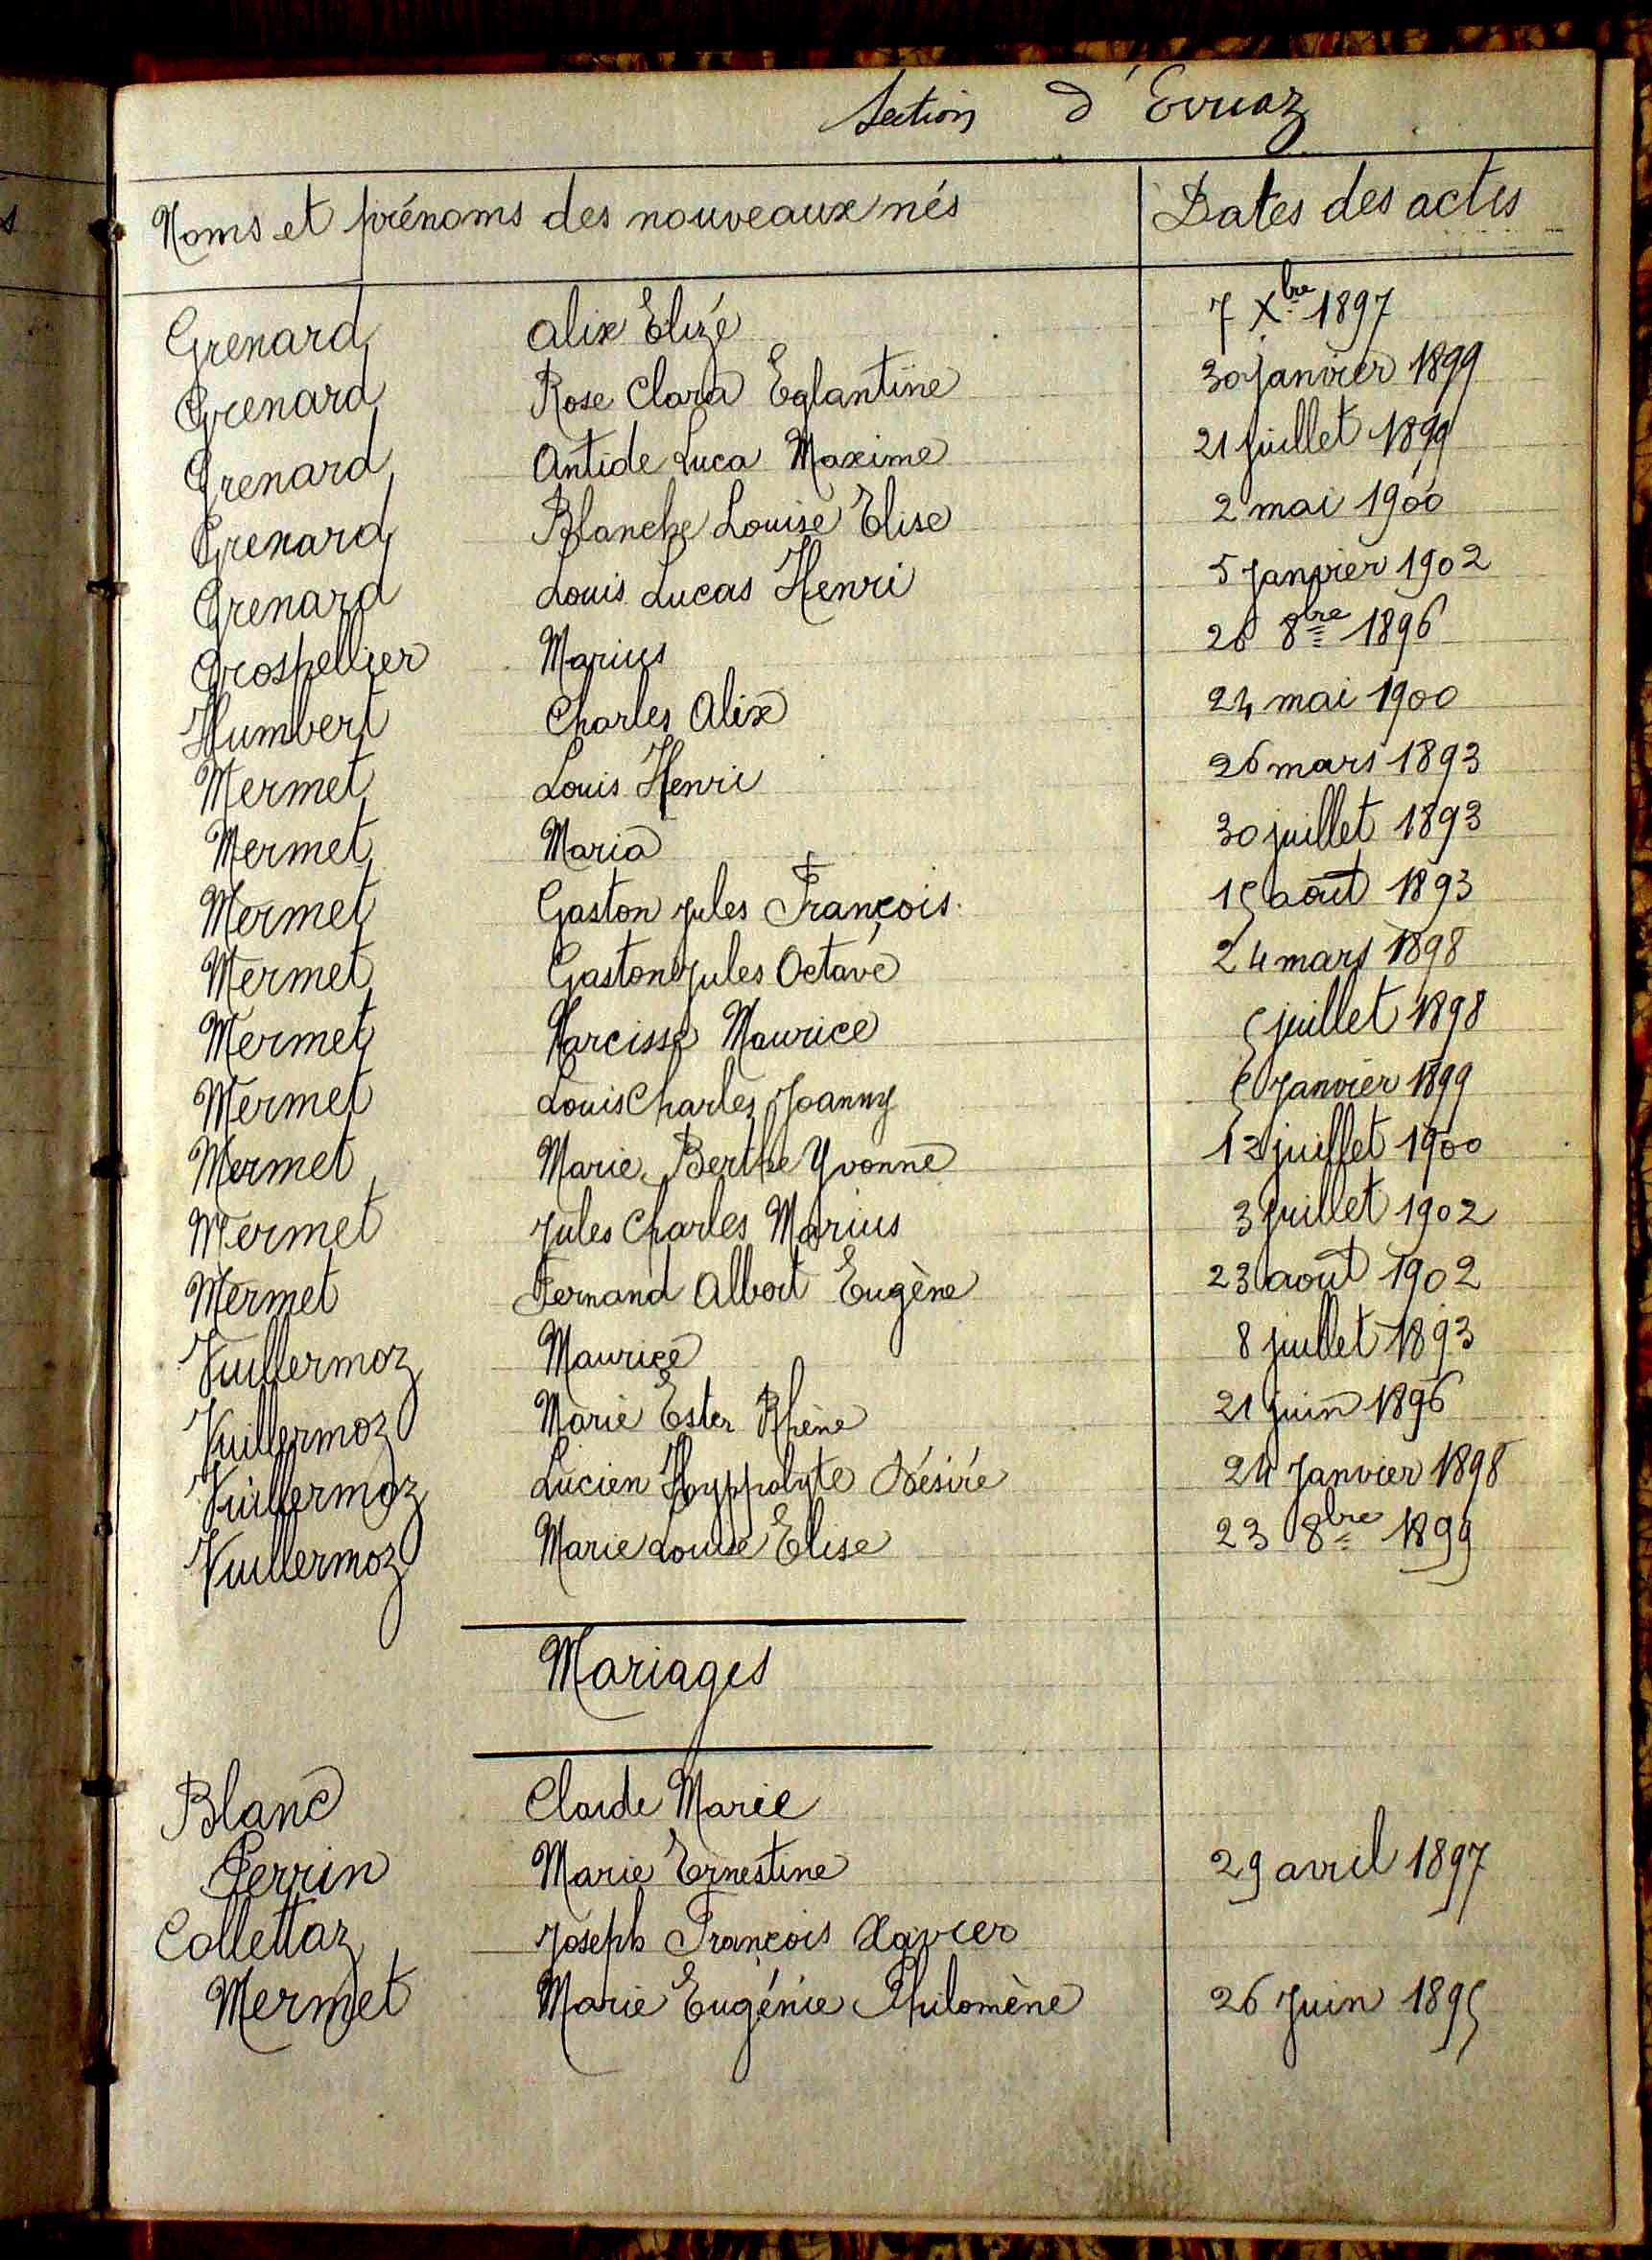 Section d'Evuaz
Noms et prénoms des nouveaux nés Dates des actes
Grenard Alix Elizé 7 Xbre 1897
Grenard Rose Clara Eglantine 30 janvier 1899
Grenard Antide Luca Maxime 21 juillet 1899
Grenard Blanche Louise Elise 2 mai 1900
Grenard Louis Lucas Henri 5 Janvier 1902
Grospellier Marius 26 8bre 1896
Humbert Charles Alix 24 mai 1900
Mermet Louis Henri 26 mars 1893
Mermet Maria 30 juillet 1893
Mermet Gaston Jules François 15 août 1893
Mermet Gaston Jules Octave 24 mars 1898
Mermet Narcisse Maurice 5 juillet 1898
Mermet Louis Charles Joanny Janvier 1899
Mermet Marie Berthe Yvonne 13 juillet 1900
Mermet Jules Charles Marius 3 juillet 1902
Mermet Fernand Albert Eugène 23 août 1902
Vuillermoz Maurice 8 juillet 1893
Vuillermoz Marie Ester Rhène 21 juin 1896
Vuillermoz Lucien Hyppolyte Désiré 24 Janvier 1898
Vuillermoz Marie Louise Elise 23 8bre 1899
Mariages
Blanc Claude Marie
Perrin Marie Ernestine 29 avril 1897
Collettaz Joseph François Xavier
Mermet Marie Eugénie Philomène 26 Juin 1895